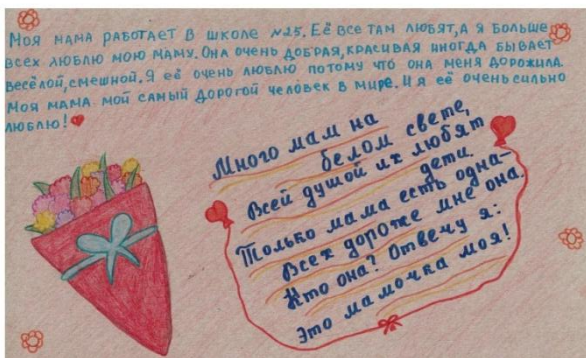 Моя мама работает в школе №25. Её все там любят, а я больше
всех люблю мою маму. Она очень добрая, красивая иногда бывает
весёлой, смешной. Я её очень люблю потому что она меня дорожила.
Моя мама мой самый дорогой человек в мире. И я её очень сильно
люблю!
Много мам на
белом свете,
Всей душой их любят
дети.
Только мама есть одна-
Всех дороже мне она.
Кто она? Отвечу я:
Это мамочка моя!